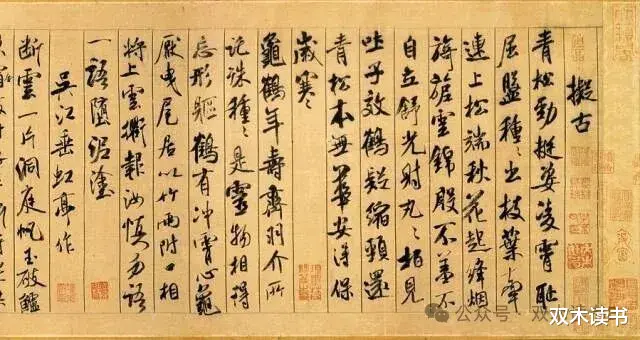 擬古
青松勁挺姿凌霄恥
屈盤種〻出枝葉牽
連上松端秋花起絳烟
旖旎雲錦殷不羞不
自立舒光射丸〻栢見
吐子效鶴疑縮頸還
青松本無華安得保
歲寒
龜鶴年壽齊羽介所
託殊種〻是靈物相得
忘形軀鶴有沖霄心龜
厭曳尾居以竹兩附口相
將上雲衢報汝慎勿語
一語墮泥塗
吳江垂虹亭作
断雲一片洞庭帆玉破鱸
公众号·双
双木读书